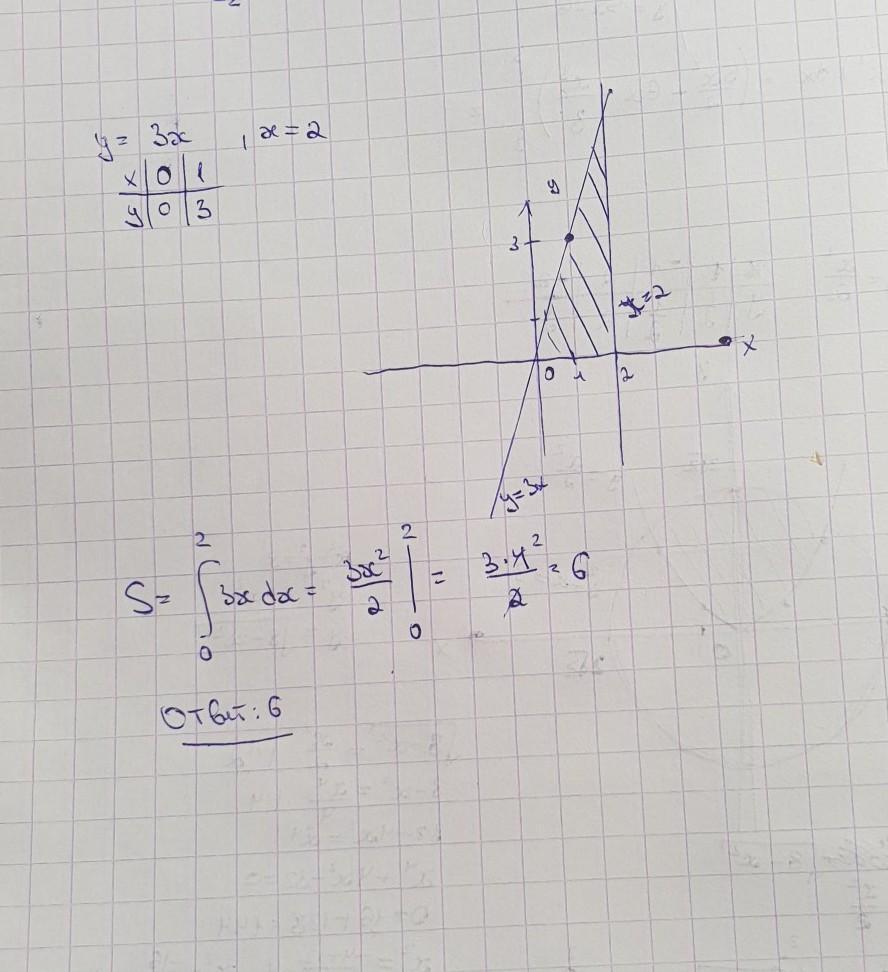 y = 3x , x = 2
x | 0 | 1
y | 0 | 3
y
3
x=2
0 1 2 x
y=3x
S = ∫₀² 3x dx = 3x²/2 |₀² = 3·4²/2 = 6
Ответ: 6